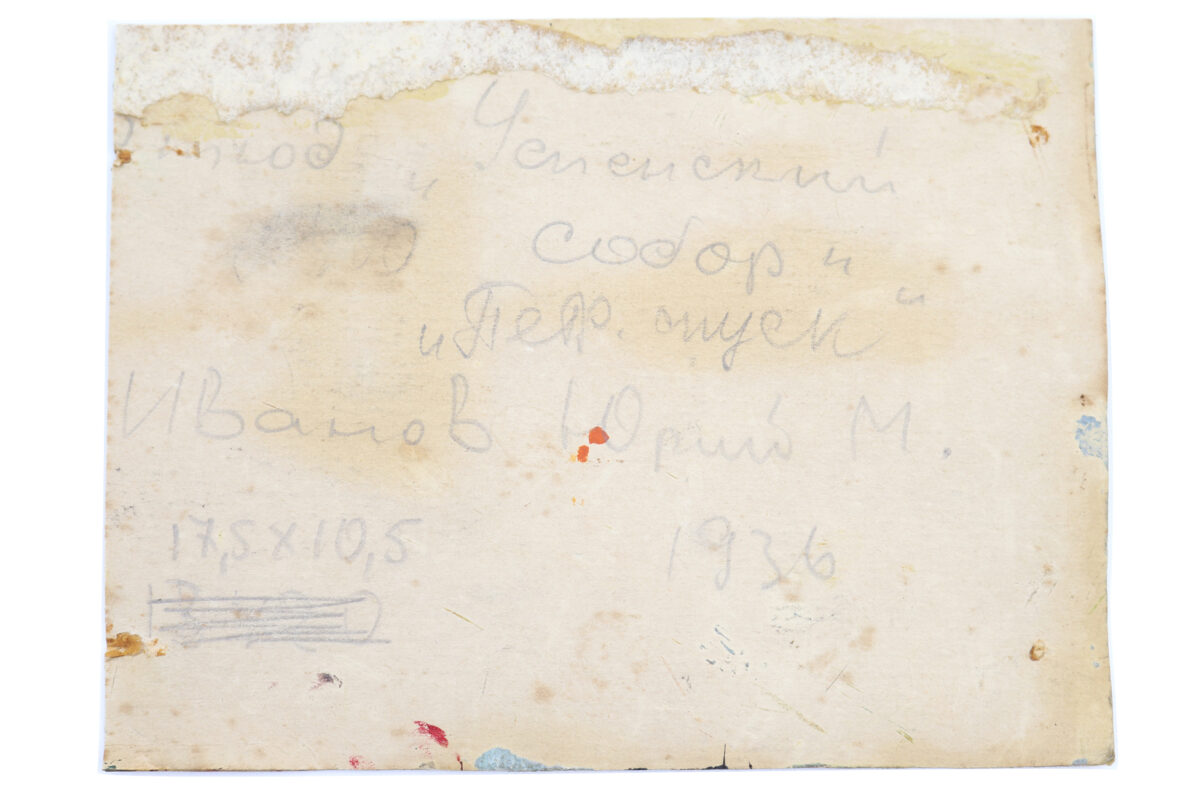 „Успенский
собор"
„Пер. спуск"
Иванов Юрий М.
17,5 х 10,5 1936